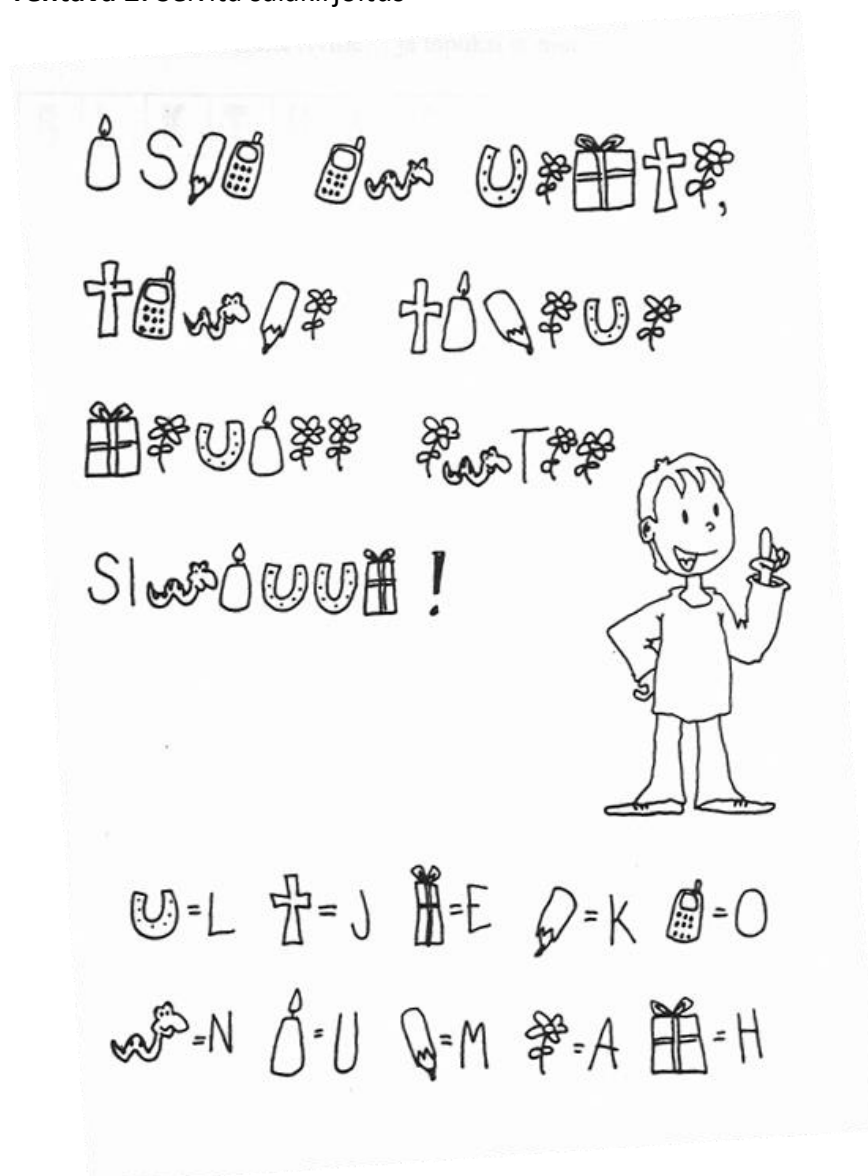 S ,
T
SI !
=L =J =E =K =O
=N =U =M =A =H